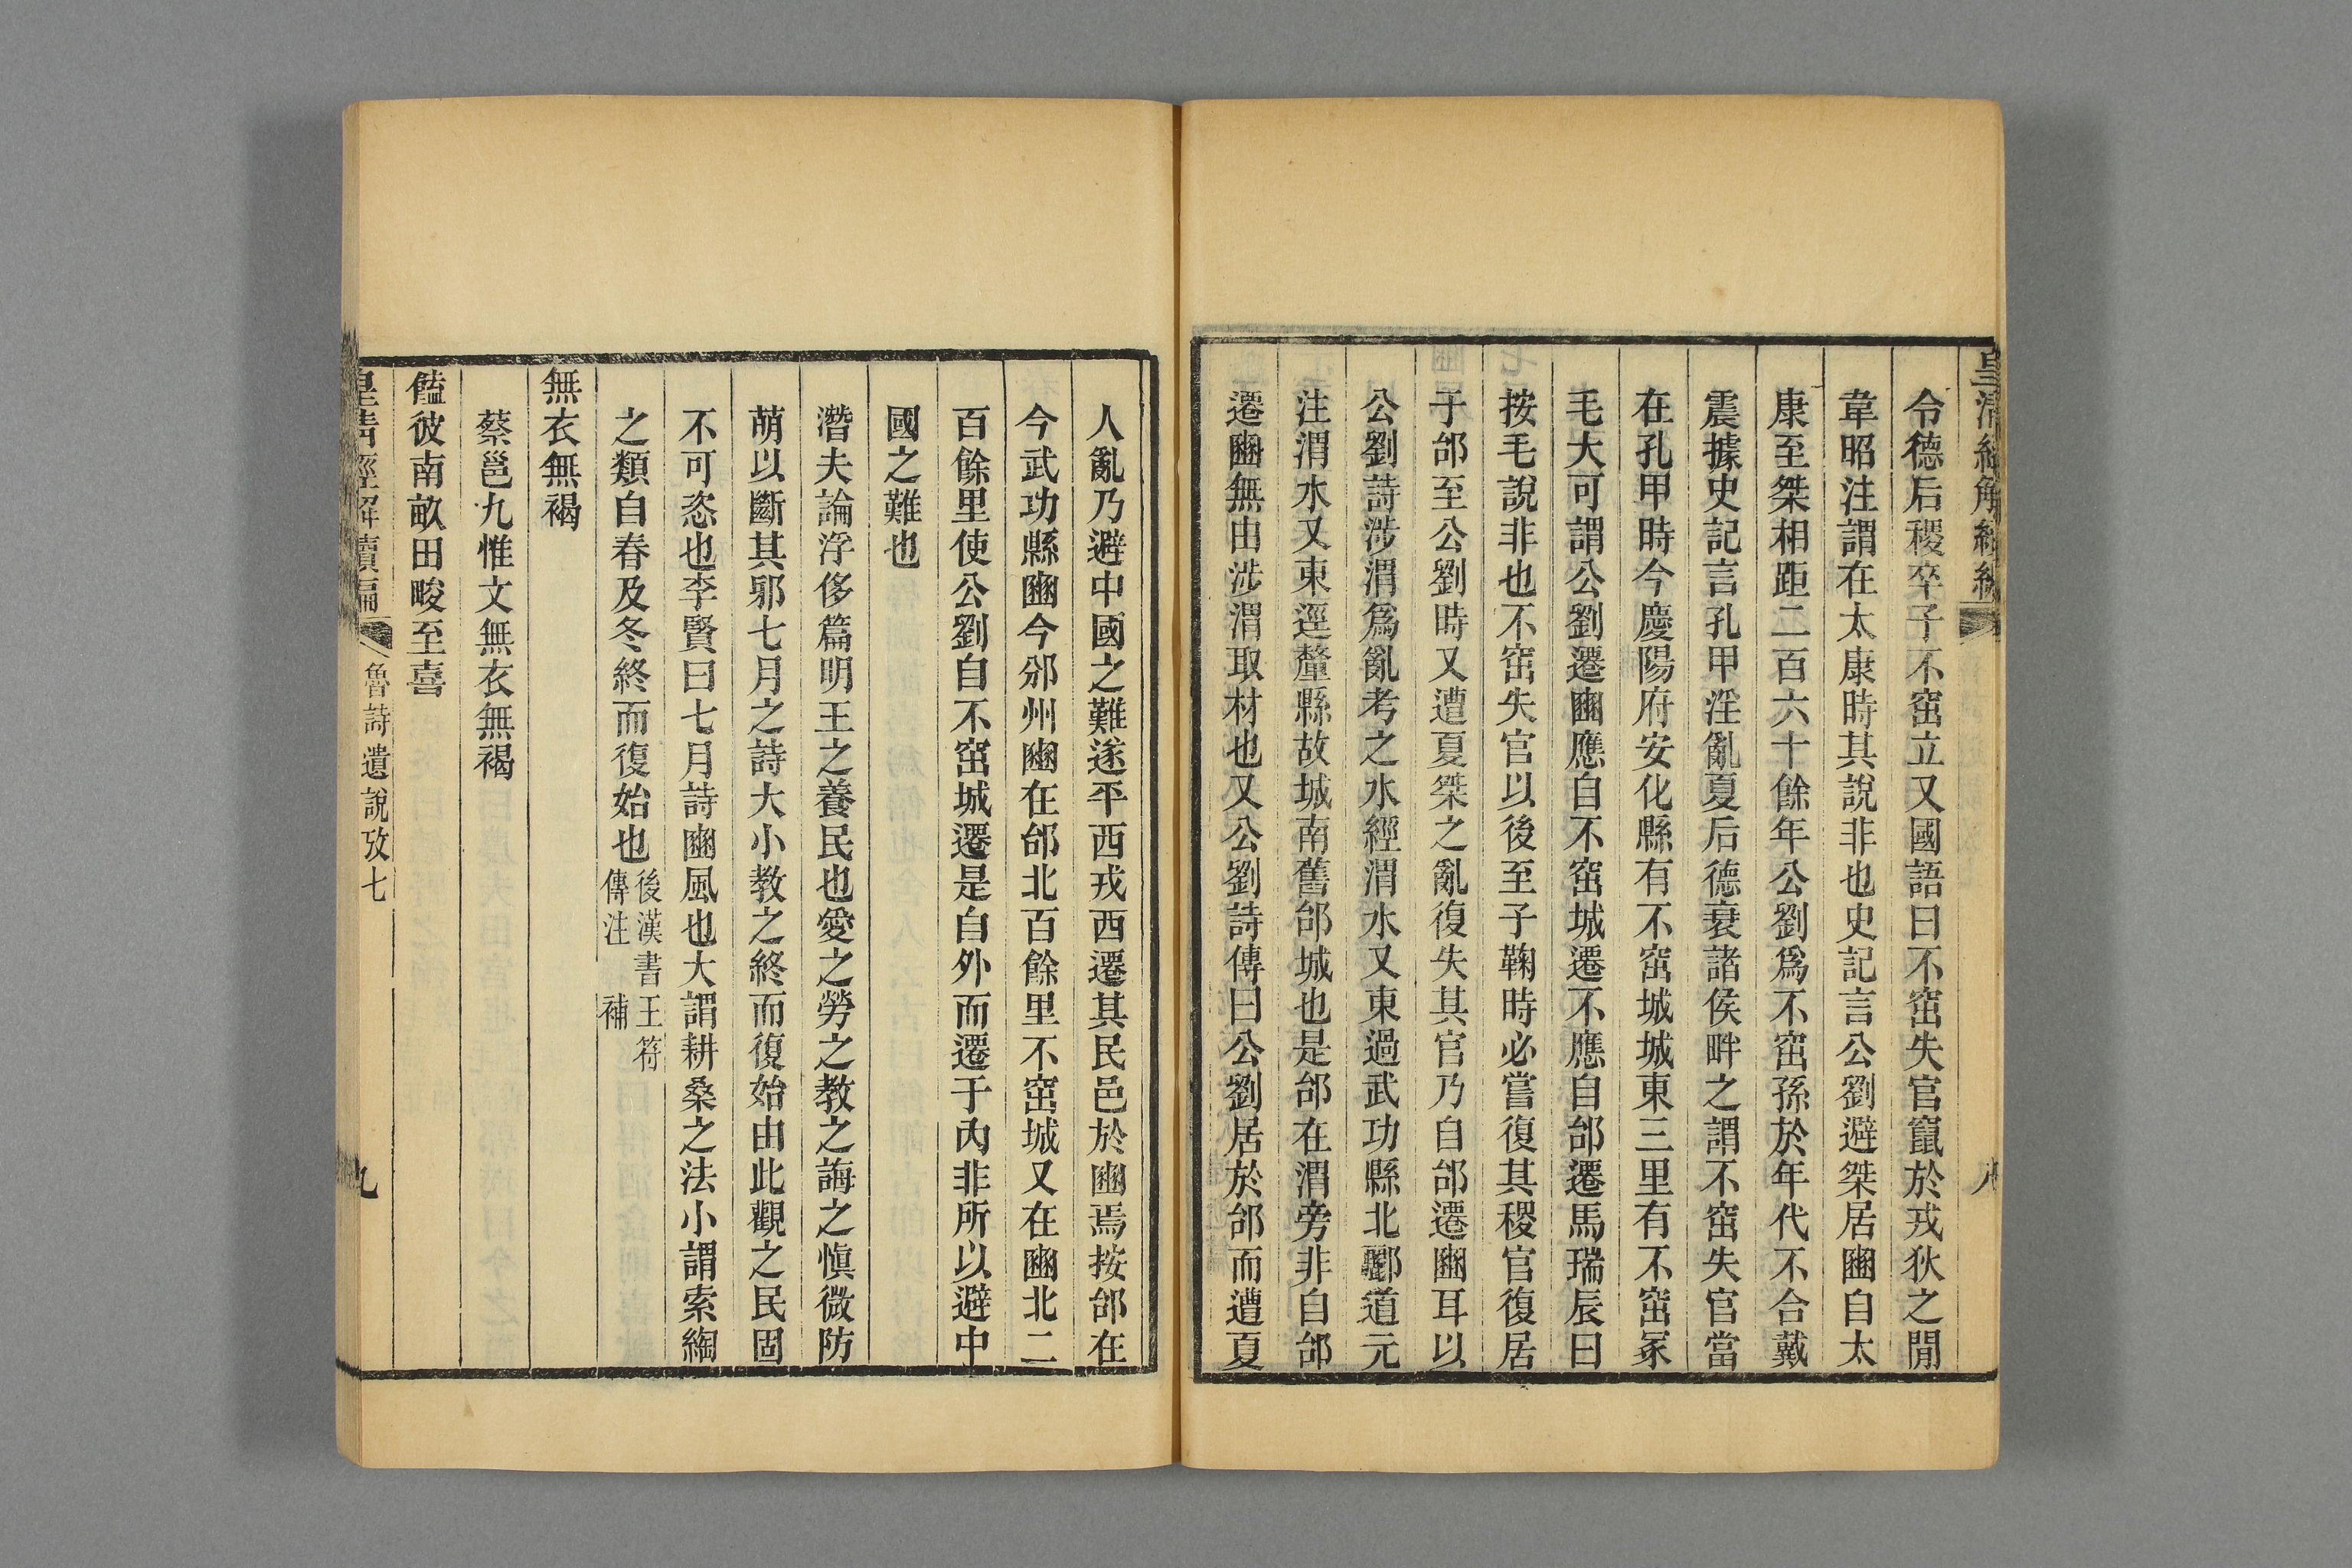 皇清經解續編
八
令德后稷卒子不窋立又國語曰不窋失官竄於戎狄之閒
韋昭注謂在太康時其說非也史記言公劉避桀居豳自太
康至桀相距二百六十餘年公劉爲不窋孫於年代不合戴
震據史記言孔甲淫亂夏后德衰諸侯畔之謂不窋失官當
在孔甲時今慶陽府安化縣有不窋城城東三里有不窋冢
毛大可謂公劉遷豳應自不窋城遷不應自邰遷馬瑞辰曰
按毛說非也不窋失官以後至子鞠時必嘗復其稷官復居
于邰至公劉時又遭夏桀之亂復失其官乃自邰遷豳耳以
公劉詩涉渭爲亂考之水經渭水又東過武功縣北酈道元
注渭水又東逕釐縣故城南舊邰城也是邰在渭旁非自邰
遷豳無由涉渭取材也又公劉詩傳曰公劉居於邰而遭夏
人亂乃避中國之難遂平西戎西遷其民邑於豳焉按邰在
今武功縣豳今邠州豳在邰北百餘里不窋城又在豳北二
百餘里使公劉自不窋城遷是自外而遷于內非所以避中
國之難也
潛夫論浮侈篇明王之養民也愛之勞之教之誨之愼微防
萌以斷其邪七月之詩大小教之終而復始由此觀之民固
不可恣也李賢曰七月詩豳風也大謂耕桑之法小謂索綯
之類自春及冬終而復始也後漢書王符傳注補
無衣無褐
蔡邕九惟文無衣無褐
饁彼南畝田畯至喜
皇清經解續編
魯詩遺說攷七
九